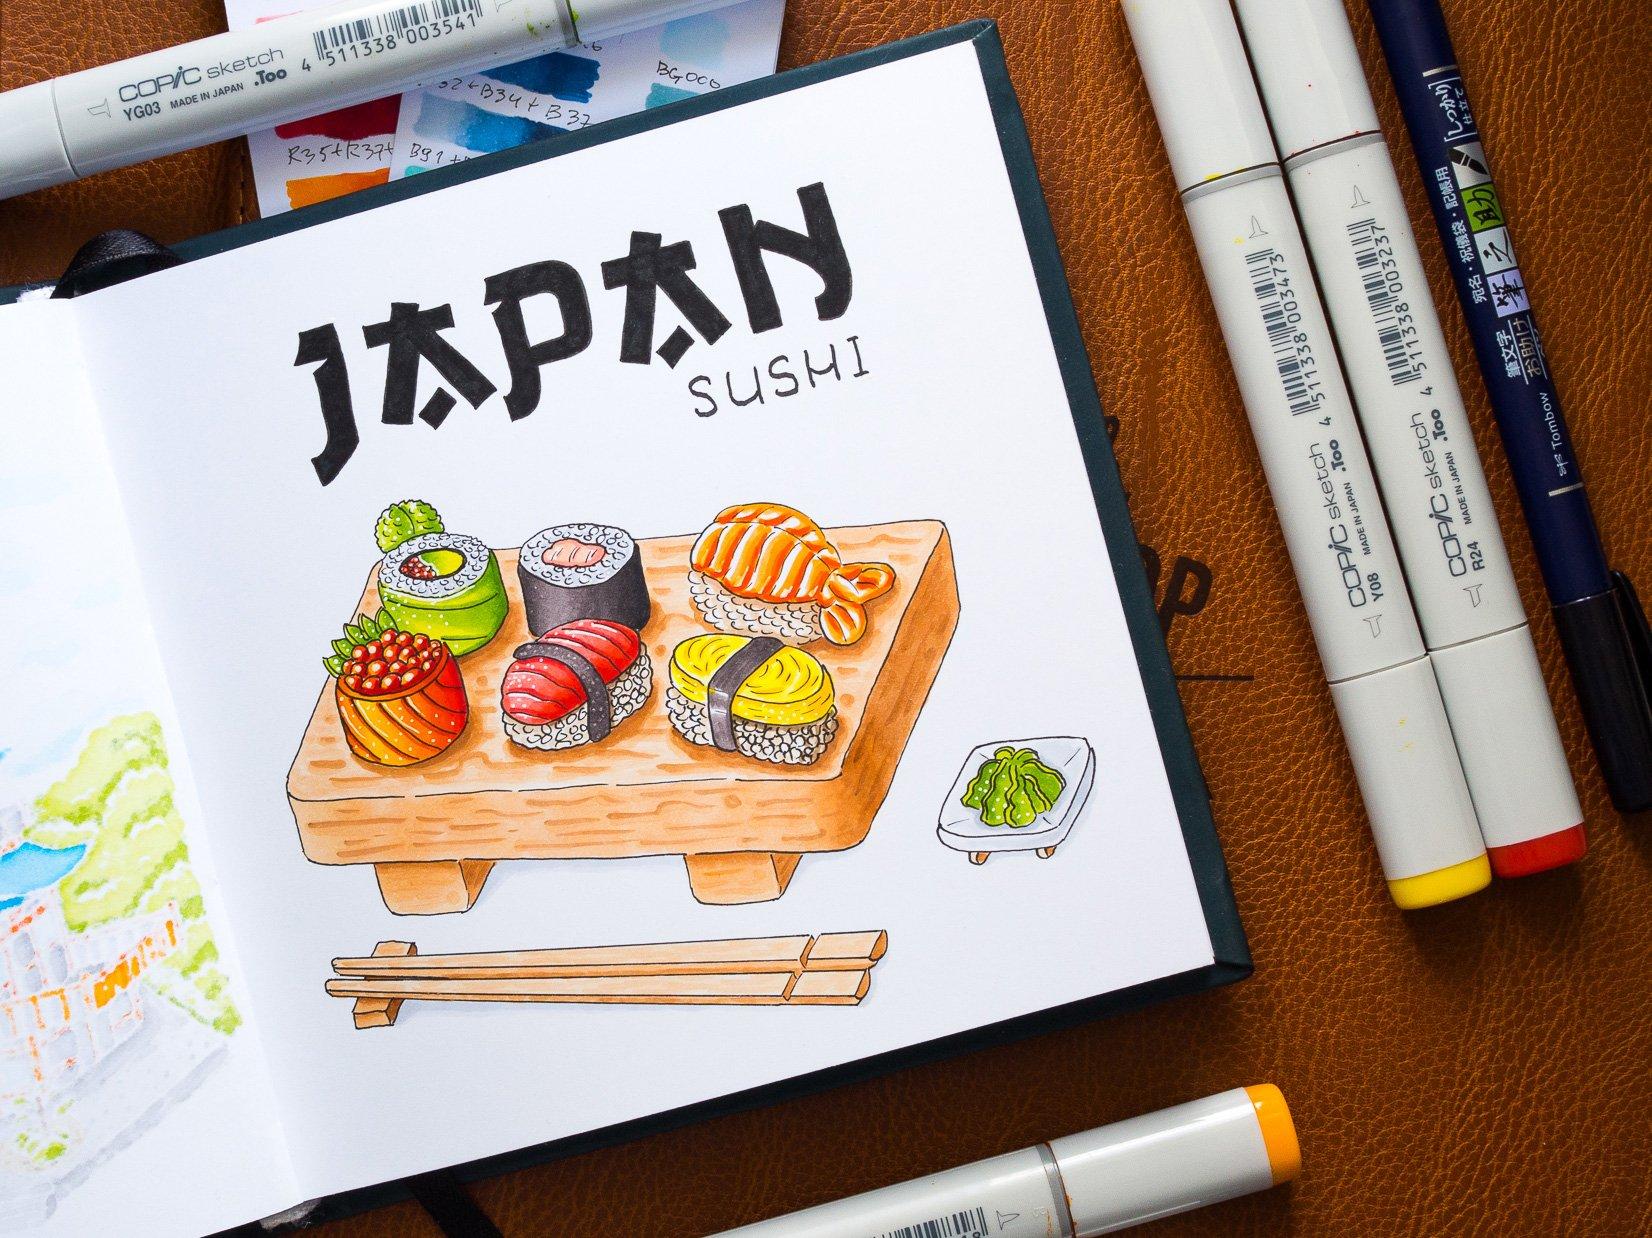 COPIC sketch
.Too
YG03 MADE IN JAPAN
4 511338 003541
BG000
B32+B34+B37
R35+R37+
B91+
JAPAN
SUSHI
COPIC sketch
.Too
Y08 MADE IN JAPAN
4 511338 003473
COPIC sketch
.Too
R24 MADE IN JAPAN
4 511338 003237
Tombow
筆文字
お助け
筆之助
宛名・祝儀袋・記帳用
しっかり
仕立て